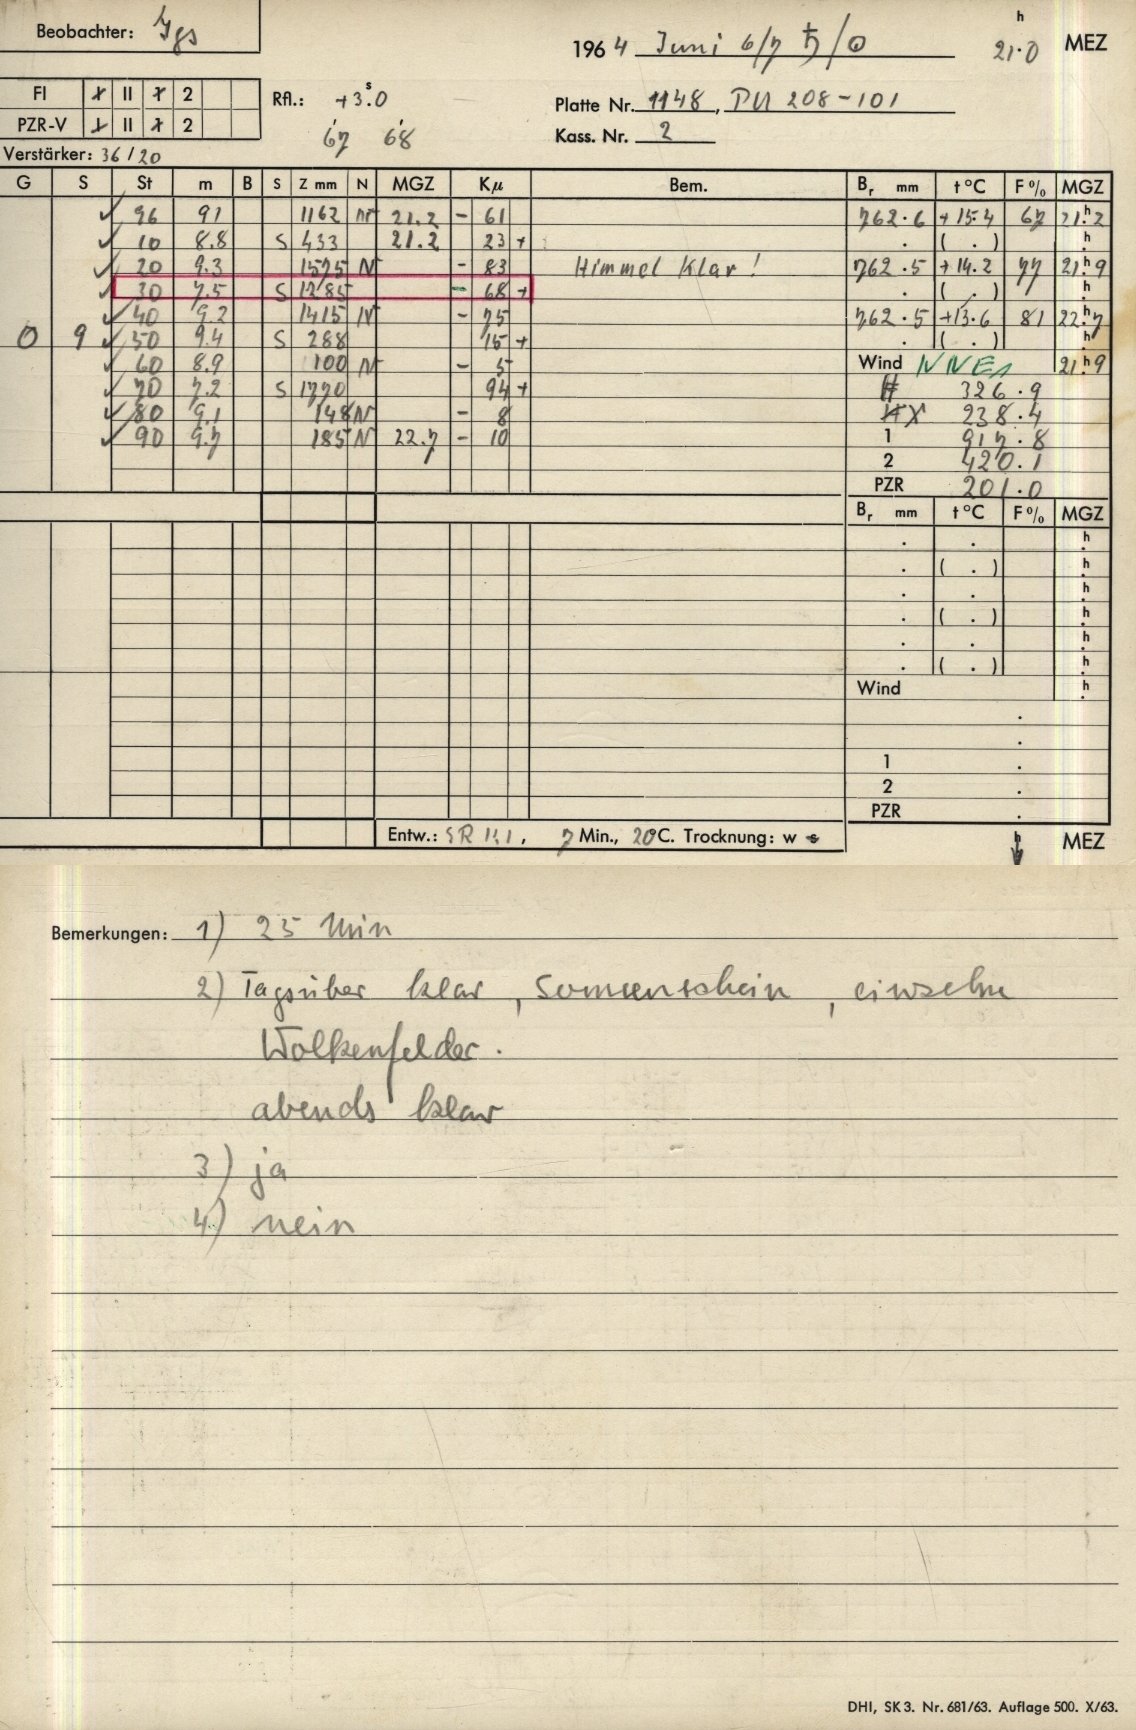 Beobachter: Jgs
1964 Juni 6/7 ♄/☉ 21h.0 MEZ
FI I II 1 2
PZR-V I II 1 2
Rfl.: +3s.0
67 68
Platte Nr. 1148, PU 208-101
Kass. Nr. 2
Verstärker: 36/20
G S St m B S Z mm N MGZ Kμ Bem. Br mm t°C F% MGZ
✓ 96 91 1162 N 21.2 - 61 762.6 +15.4 67 21h.2
✓ 10 8.8 S 433 21.2 23 + . ( . ) h.
✓ 20 9.3 1575 N - 83 Himmel klar! 762.5 +14.2 77 21h.9
✓ 30 7.5 S 1285 - 68 + . ( . ) h.
✓ 40 9.2 1415 N - 75 762.5 +13.6 81 22h.7
0 9 ✓ 50 9.4 S 288 15 + . ( . ) h.
✓ 60 8.9 100 N - 5 Wind NNE1 21h9
✓ 70 7.2 S 1770 94 + 326.9
✓ 80 9.1 148 N - 8 X 238.4
✓ 90 9.7 185 N 22.7 - 10 1 917.8
2 420.1
PZR 201.0
Br mm t°C F% MGZ
. . h.
. ( . ) h.
. . h.
. ( . ) h.
. . h.
. ( . ) h.
Wind h.
.
.
1 .
2 .
PZR .
Entw.: 7 Min., 20°C. Trocknung: w s h MEZ
Bemerkungen: 1) 25 Min
2) Tagsüber klar, Sonnenschein, einzelne
Wolkenfelder.
abends klar
3) ja
4) nein
DHI, SK 3. Nr. 681/63. Auflage 500. X/63.